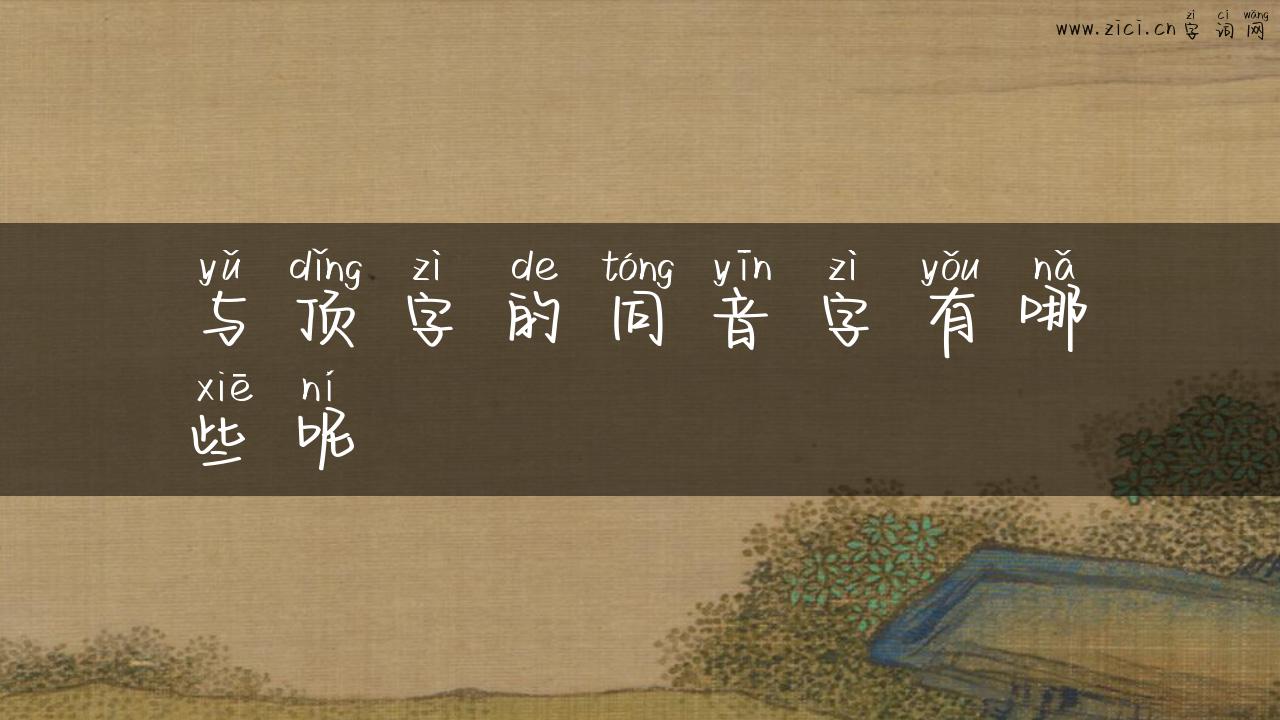 zì cí wǎng
www.zici.cn 字 词 网
yǔ dǐng zì de tóng yīn zì yǒu nǎ
与 顶 字 的 同 音 字 有 哪
xiē ní
些 呢